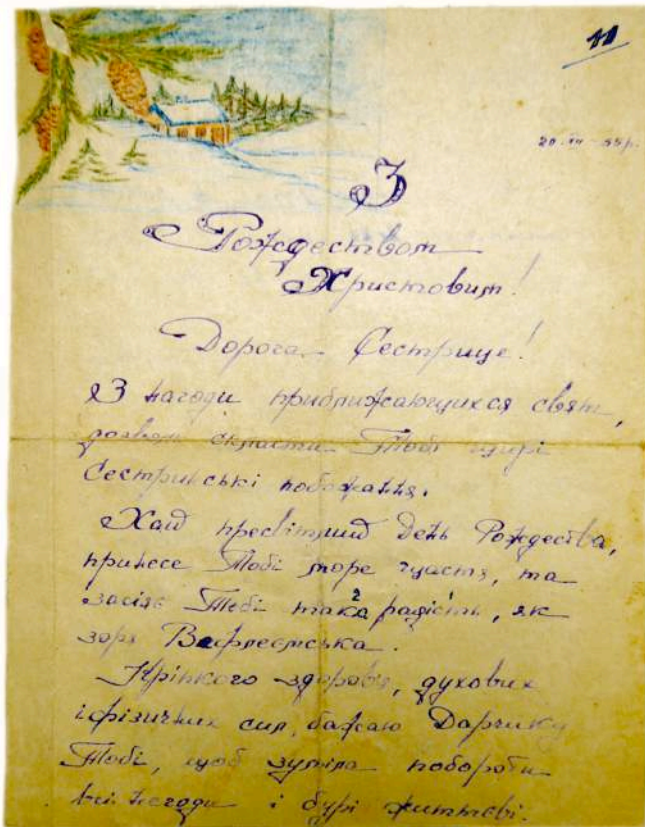 11
20.XII-55р.
З
Рождеством
Христовим!
Дорога Сестрице!
З нагоди приближающихся свят,
дозволь скласти Тобі щирі
Сестринські побажання.
Хай пресвітлий День Рождества,
принесе Тобі море щастя, та
засіяє Тобі така радість, як
зоря Вифлеємська.
Кріпкого здоровя, духових
і фізичних сил, бажаю Дарчику
Тобі, щоб зуміла побороти
всі негоди і бурі життєві.